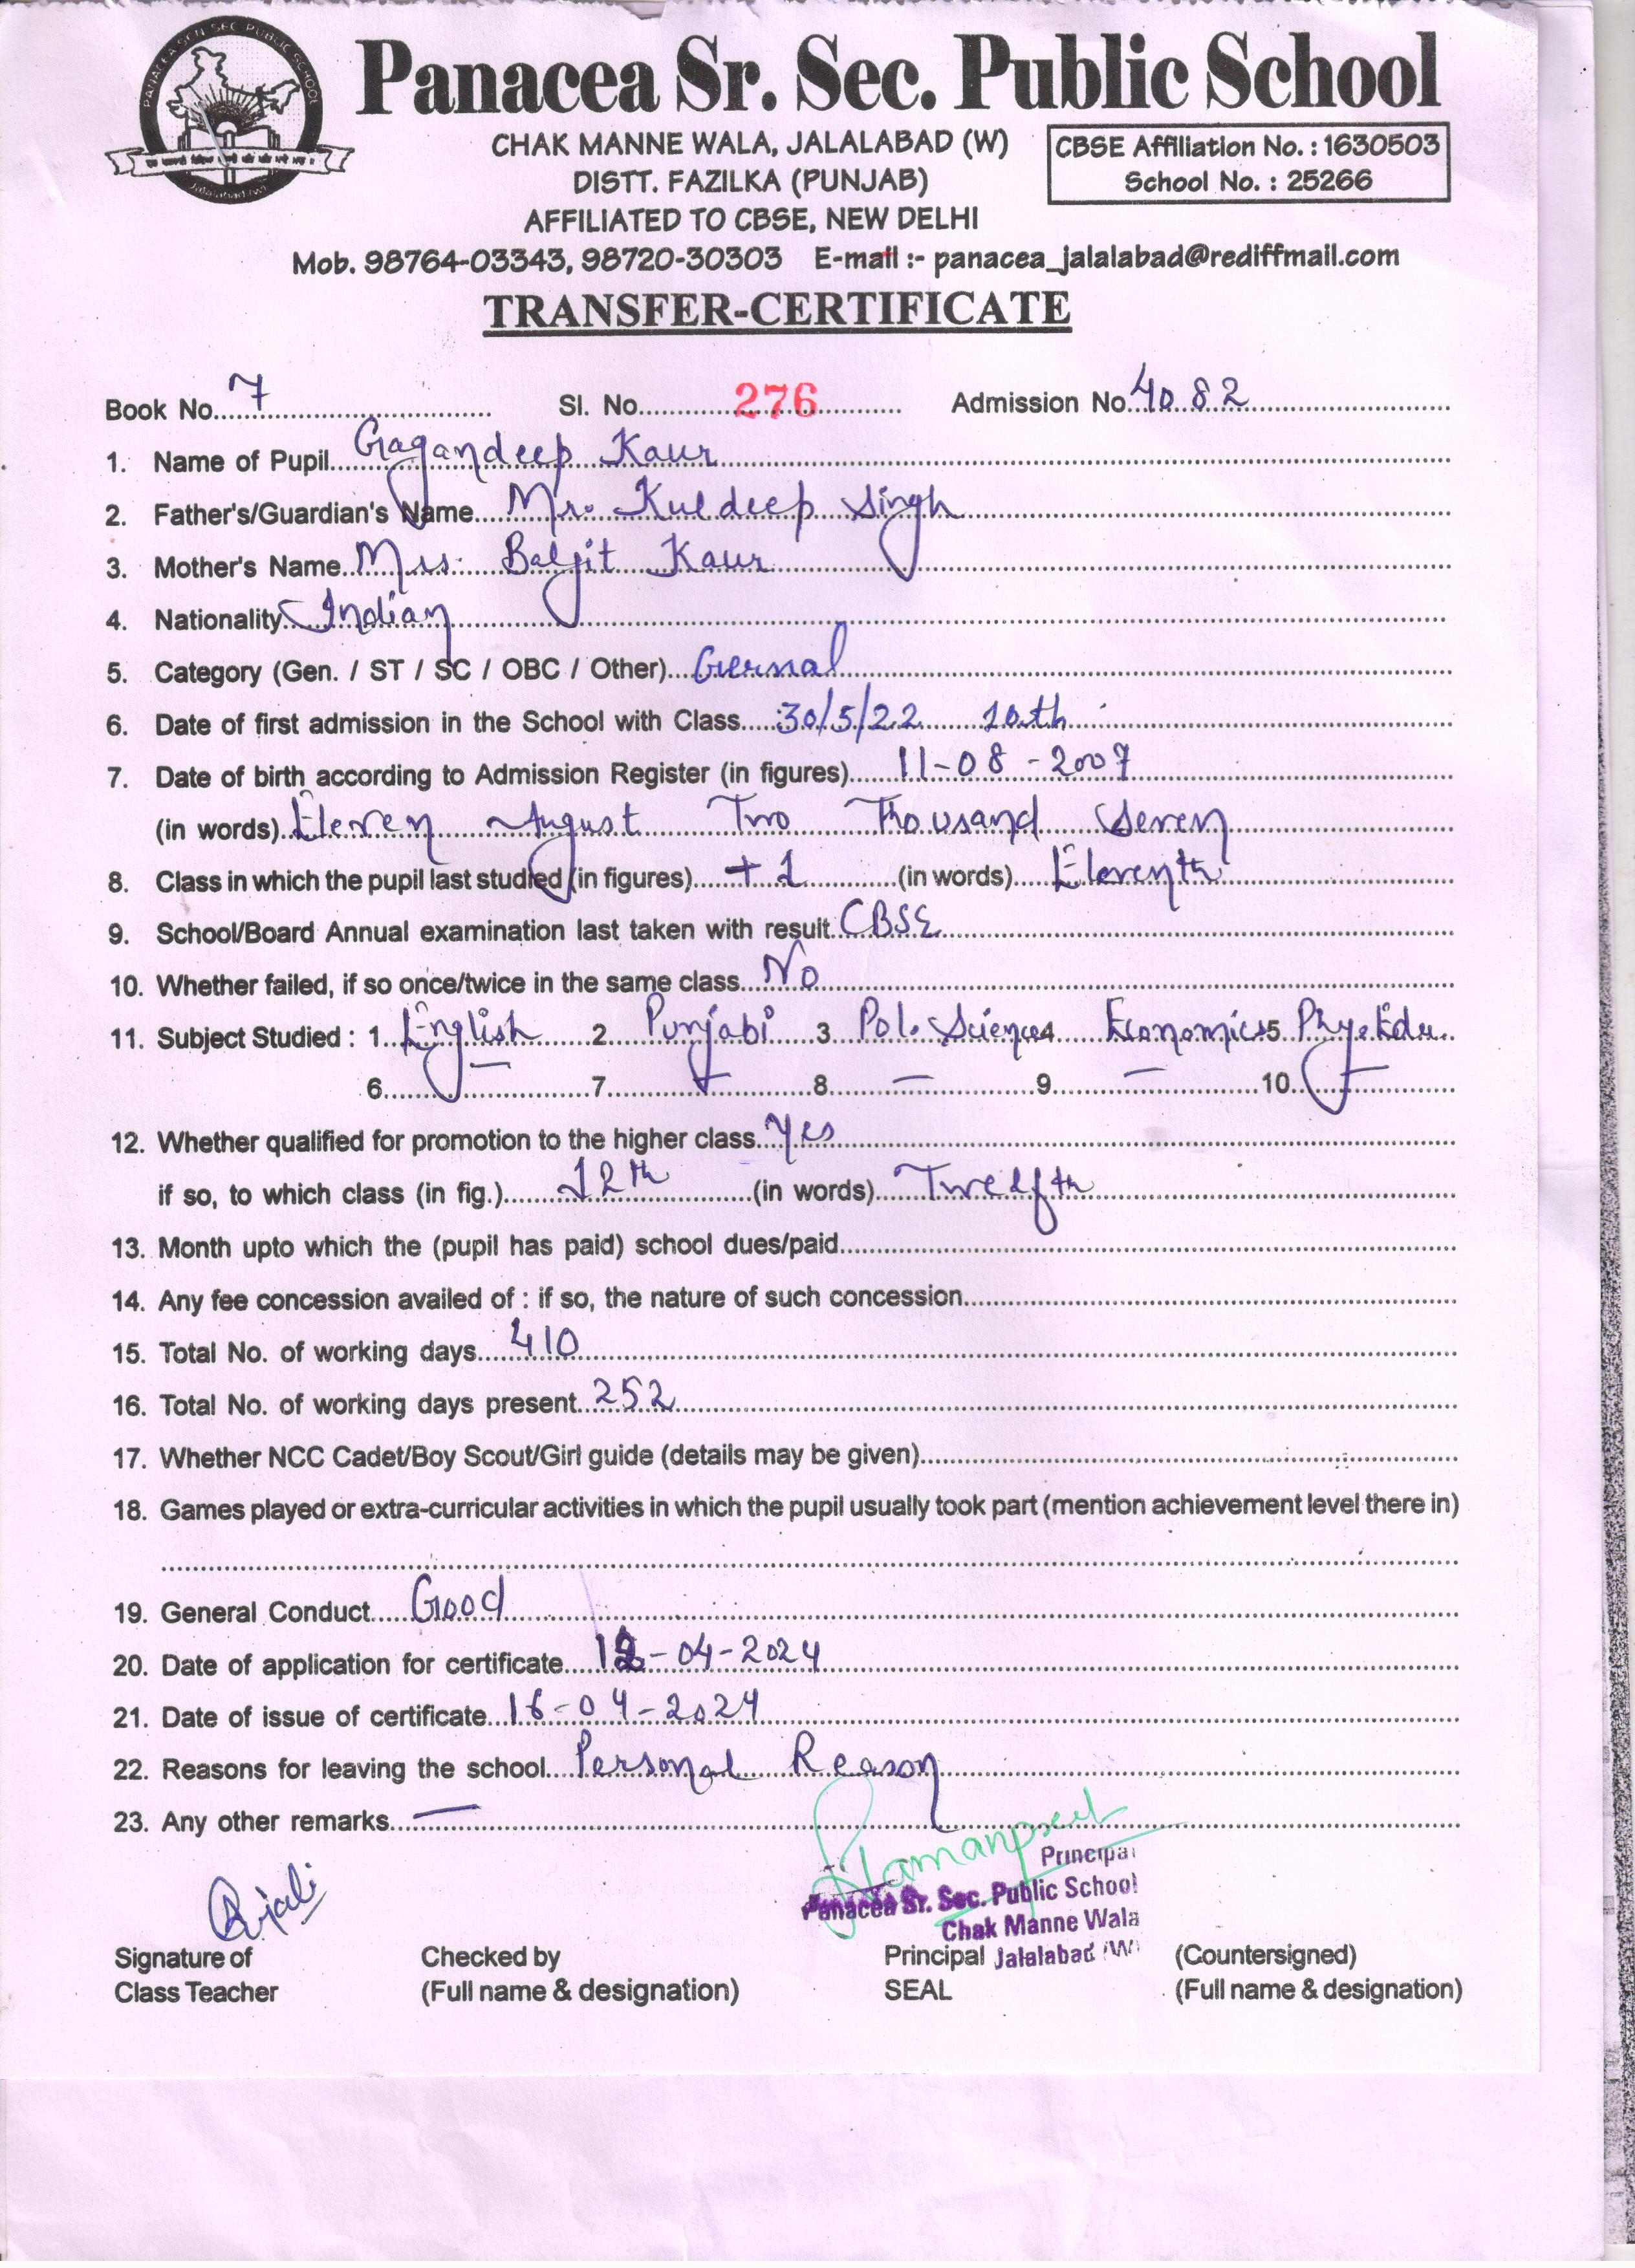 PANACEA SEN SEC PUBLIC SCHOOL
Jalalabad (W)
Panacea Sr. Sec. Public School
CHAK MANNE WALA, JALALABAD (W)
DISTT. FAZILKA (PUNJAB)
AFFILIATED TO CBSE, NEW DELHI
CBSE Affiliation No. : 1630503
School No. : 25266
Mob. 98764-03343, 98720-30303 E-mail :- panacea_jalalabad@rediffmail.com
TRANSFER-CERTIFICATE
Book No. 7 Sl. No. 276 Admission No. 4082
1. Name of Pupil Gagandeep Kaur
2. Father's/Guardian's Name Mr. Kuldeep Singh
3. Mother's Name Mrs. Baljit Kaur
4. Nationality Indian
5. Category (Gen. / ST / SC / OBC / Other) Gernal
6. Date of first admission in the School with Class 30/5/22 10th
7. Date of birth according to Admission Register (in figures) 11-08-2007
(in words) Eleven August Two Thousand Seven
8. Class in which the pupil last studied (in figures) +1 (in words) Eleventh
9. School/Board Annual examination last taken with result CBSE
10. Whether failed, if so once/twice in the same class No
11. Subject Studied : 1 English 2 Punjabi 3 Pol. Science 4 Economics 5 Phy. Edu.
6 — 7 — 8 — 9 — 10 —
12. Whether qualified for promotion to the higher class Yes
if so, to which class (in fig.) 12th (in words) Twelfth
13. Month upto which the (pupil has paid) school dues/paid
14. Any fee concession availed of : if so, the nature of such concession
15. Total No. of working days 410
16. Total No. of working days present 252
17. Whether NCC Cadet/Boy Scout/Girl guide (details may be given)
18. Games played or extra-curricular activities in which the pupil usually took part (mention achievement level there in)
19. General Conduct Good
20. Date of application for certificate 12-04-2024
21. Date of issue of certificate 16-04-2024
22. Reasons for leaving the school Personal Reason
23. Any other remarks —
Principal
Panacea Sr. Sec. Public School
Chak Manne Wala
Jalalabad (W)
Signature of Checked by Principal (Countersigned)
Class Teacher (Full name & designation) SEAL (Full name & designation)